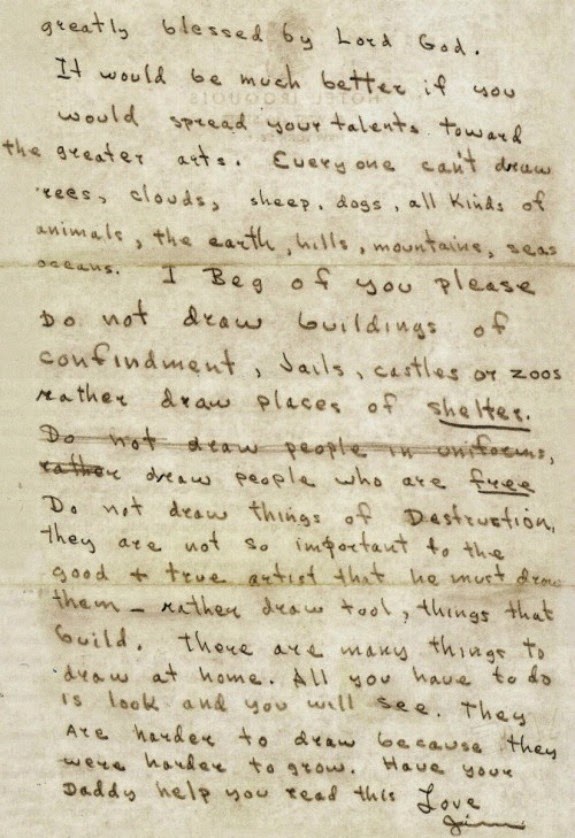 greatly blessed by Lord God.
It would be much better if you
would spread your talents toward
the greater arts. Everyone can't draw
rees, clouds, sheep, dogs, all kinds of
animals, the earth, hills, mountains, seas
oceans. I Beg of you please
Do not draw buildings of
confindment, Jails, castles or zoos
rather draw places of shelter.
Do not draw people in uniforms,
rather draw people who are free
Do not draw things of Destruction,
they are not so important to the
good + true artist that he must draw
them - rather draw tool, things that
build. There are many things to
draw at home. All you have to do
is look and you will see. They
Are harder to draw because they
were harder to grow. Have your
Daddy help you read this Love
Jimi